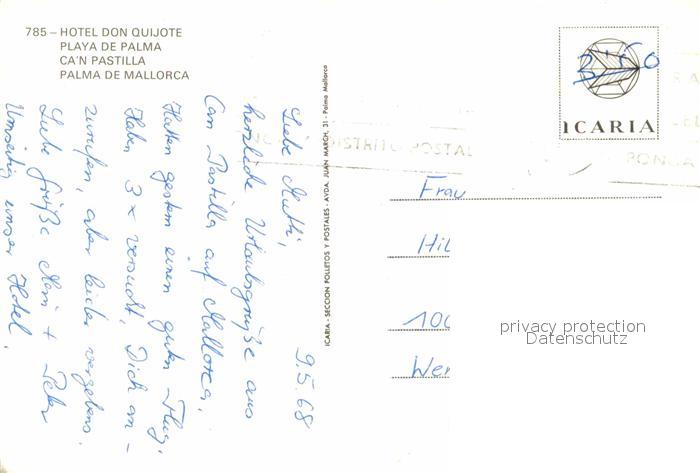 785 – HOTEL DON QUIJOTE
PLAYA DE PALMA
CA'N PASTILLA
PALMA DE MALLORCA
9.5.68
Liebe Mutti,
herzliche Urlaubsgrüße aus
Can Pastilla auf Mallorca.
Hatten gestern einen guten Flug.
Haben 3 x versucht, Dich an-
zurufen, aber leider vergebens.
Liebe Grüße + Peter
Umseitig unser Hotel.
ICARIA - SECCION FOLLETOS Y POSTALES - AVDA. JUAN MARCH, 31 - Palma Mallorca
ICARIA
DISTRITO POSTAL
Frau
Hil
100
Wer
privacy protection
Datenschutz